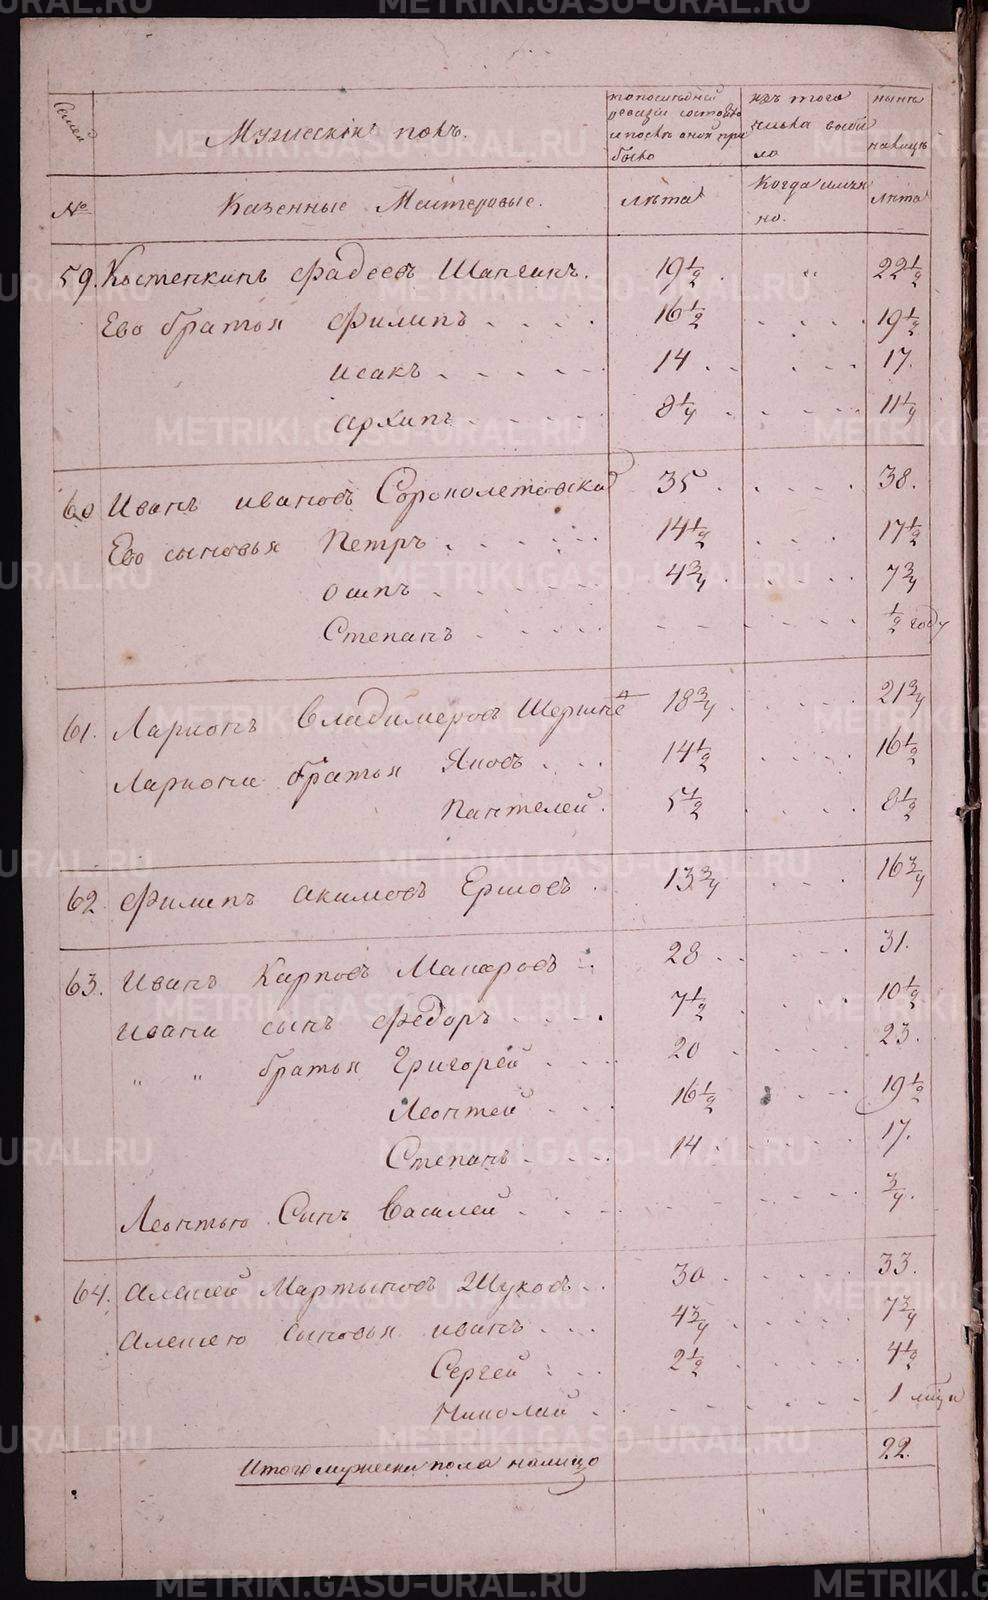 METRIKI.GASO-URAL.RU
Семей
Мужескiй полъ.
по последней
ревизiи состояло
и после оной при
было
изъ того
числа выбы
ло
ныне
налицо
№
Казенные Мастеровые.
лета
Когда имян
но.
лета
59. Костенкинъ Фадеевъ Шапкинъ. 19 1/2 " 22 1/2
Ево братья Филипъ 16 1/2 19 1/2
Исакъ 14 17.
Архипъ 8 1/4 11 1/4
60 Иванъ Ивановъ Сорополетовской 35 38.
Ево сыновья Петръ 14 1/2 17 1/2
Осипъ 4 3/4 7 3/4
Степанъ 1/2 году
61. Ларионъ Владимеровъ 18 3/4 21 3/4
Лариона братья Яковъ 14 1/2 16 1/2
Пантелей. 5 1/2 8 1/2
62 Филипъ Акимовъ Ершовъ 13 3/4 16 3/4
63. Иванъ Карповъ Макаровъ 28 31.
Ивана сынъ Федоръ 7 1/2 10 1/2
" " братья Григорей 20 23.
Леонтей 16 1/2 19 1/2
Степанъ 14 17.
Леонтью Сынъ Василей 3/4.
64. Алексей Мартыновъ Щуковъ 30 33.
Алексею сыновья Иванъ 4 3/4 7 3/4
Сергей 2 1/2 4 1/2
Николай 1 мтца
Итого мужеска пола налицо 22.